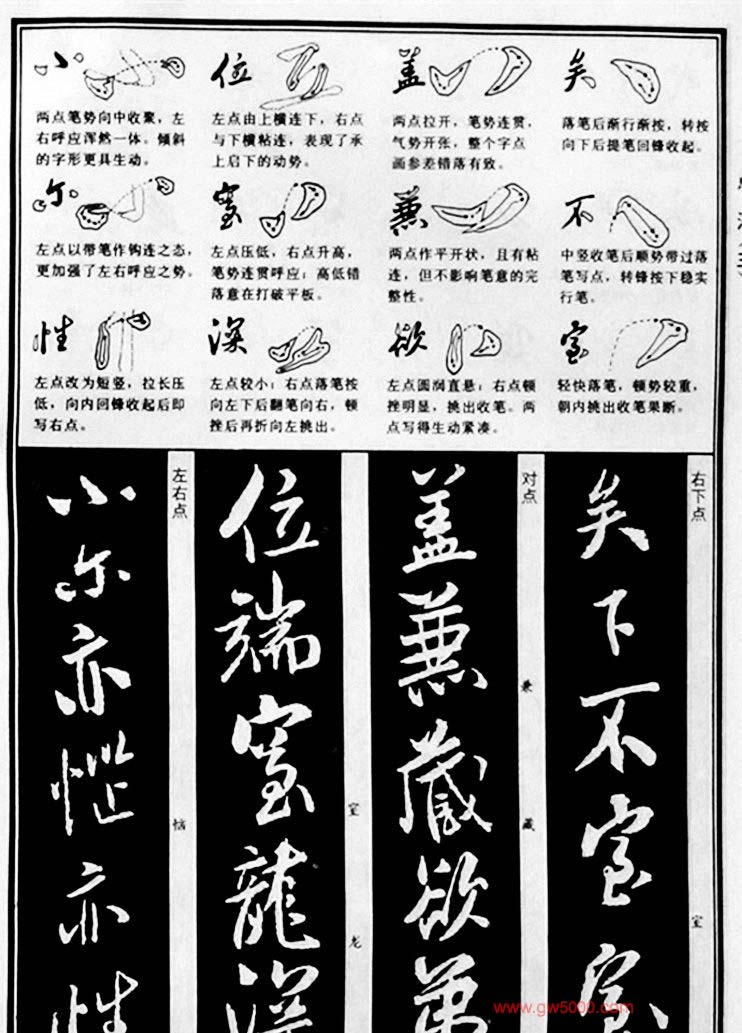 小
两点笔势向中收聚,左
右呼应浑然一体。倾斜
的字形更具生动。
位
左点由上横连下,右点
与下横粘连,表现了承
上启下的动势。
盖
两点拉开,笔势连贯,
气势开张,整个字点
画参差错落有致。
矣
落笔后渐行渐按,转按
向下后提笔回锋收起。
尔
左点以带笔作钩连之态,
更加强了左右呼应之势。
室
左点压低,右点升高,
笔势连贯呼应;高低错
落意在打破平板。
兼
两点作平开状,且有粘
连,但不影响笔意的完
整性。
不
中竖收笔后顺势带过落
笔写点,转锋按下稳实
行笔。
性
左点改为短竖,拉长压
低,向内回锋收起后即
写右点。
深
左点较小;右点落笔按
向左下后翻笔向右,顿
挫后再折向左挑出。
欲
左点圆润直悬;右点顿
挫明显,挑出收笔。两
点写得生动紧凑。
室
轻快落笔,顿势较重,
朝内挑出收笔果断。
右下点
矣
下
不
室
室
室
对点
盖
兼
兼
藏
藏
欲
弟
位
端
室
室
龍
龙
深
左右点
小
尔
亦
恼
亦
性
www.gw5000.com